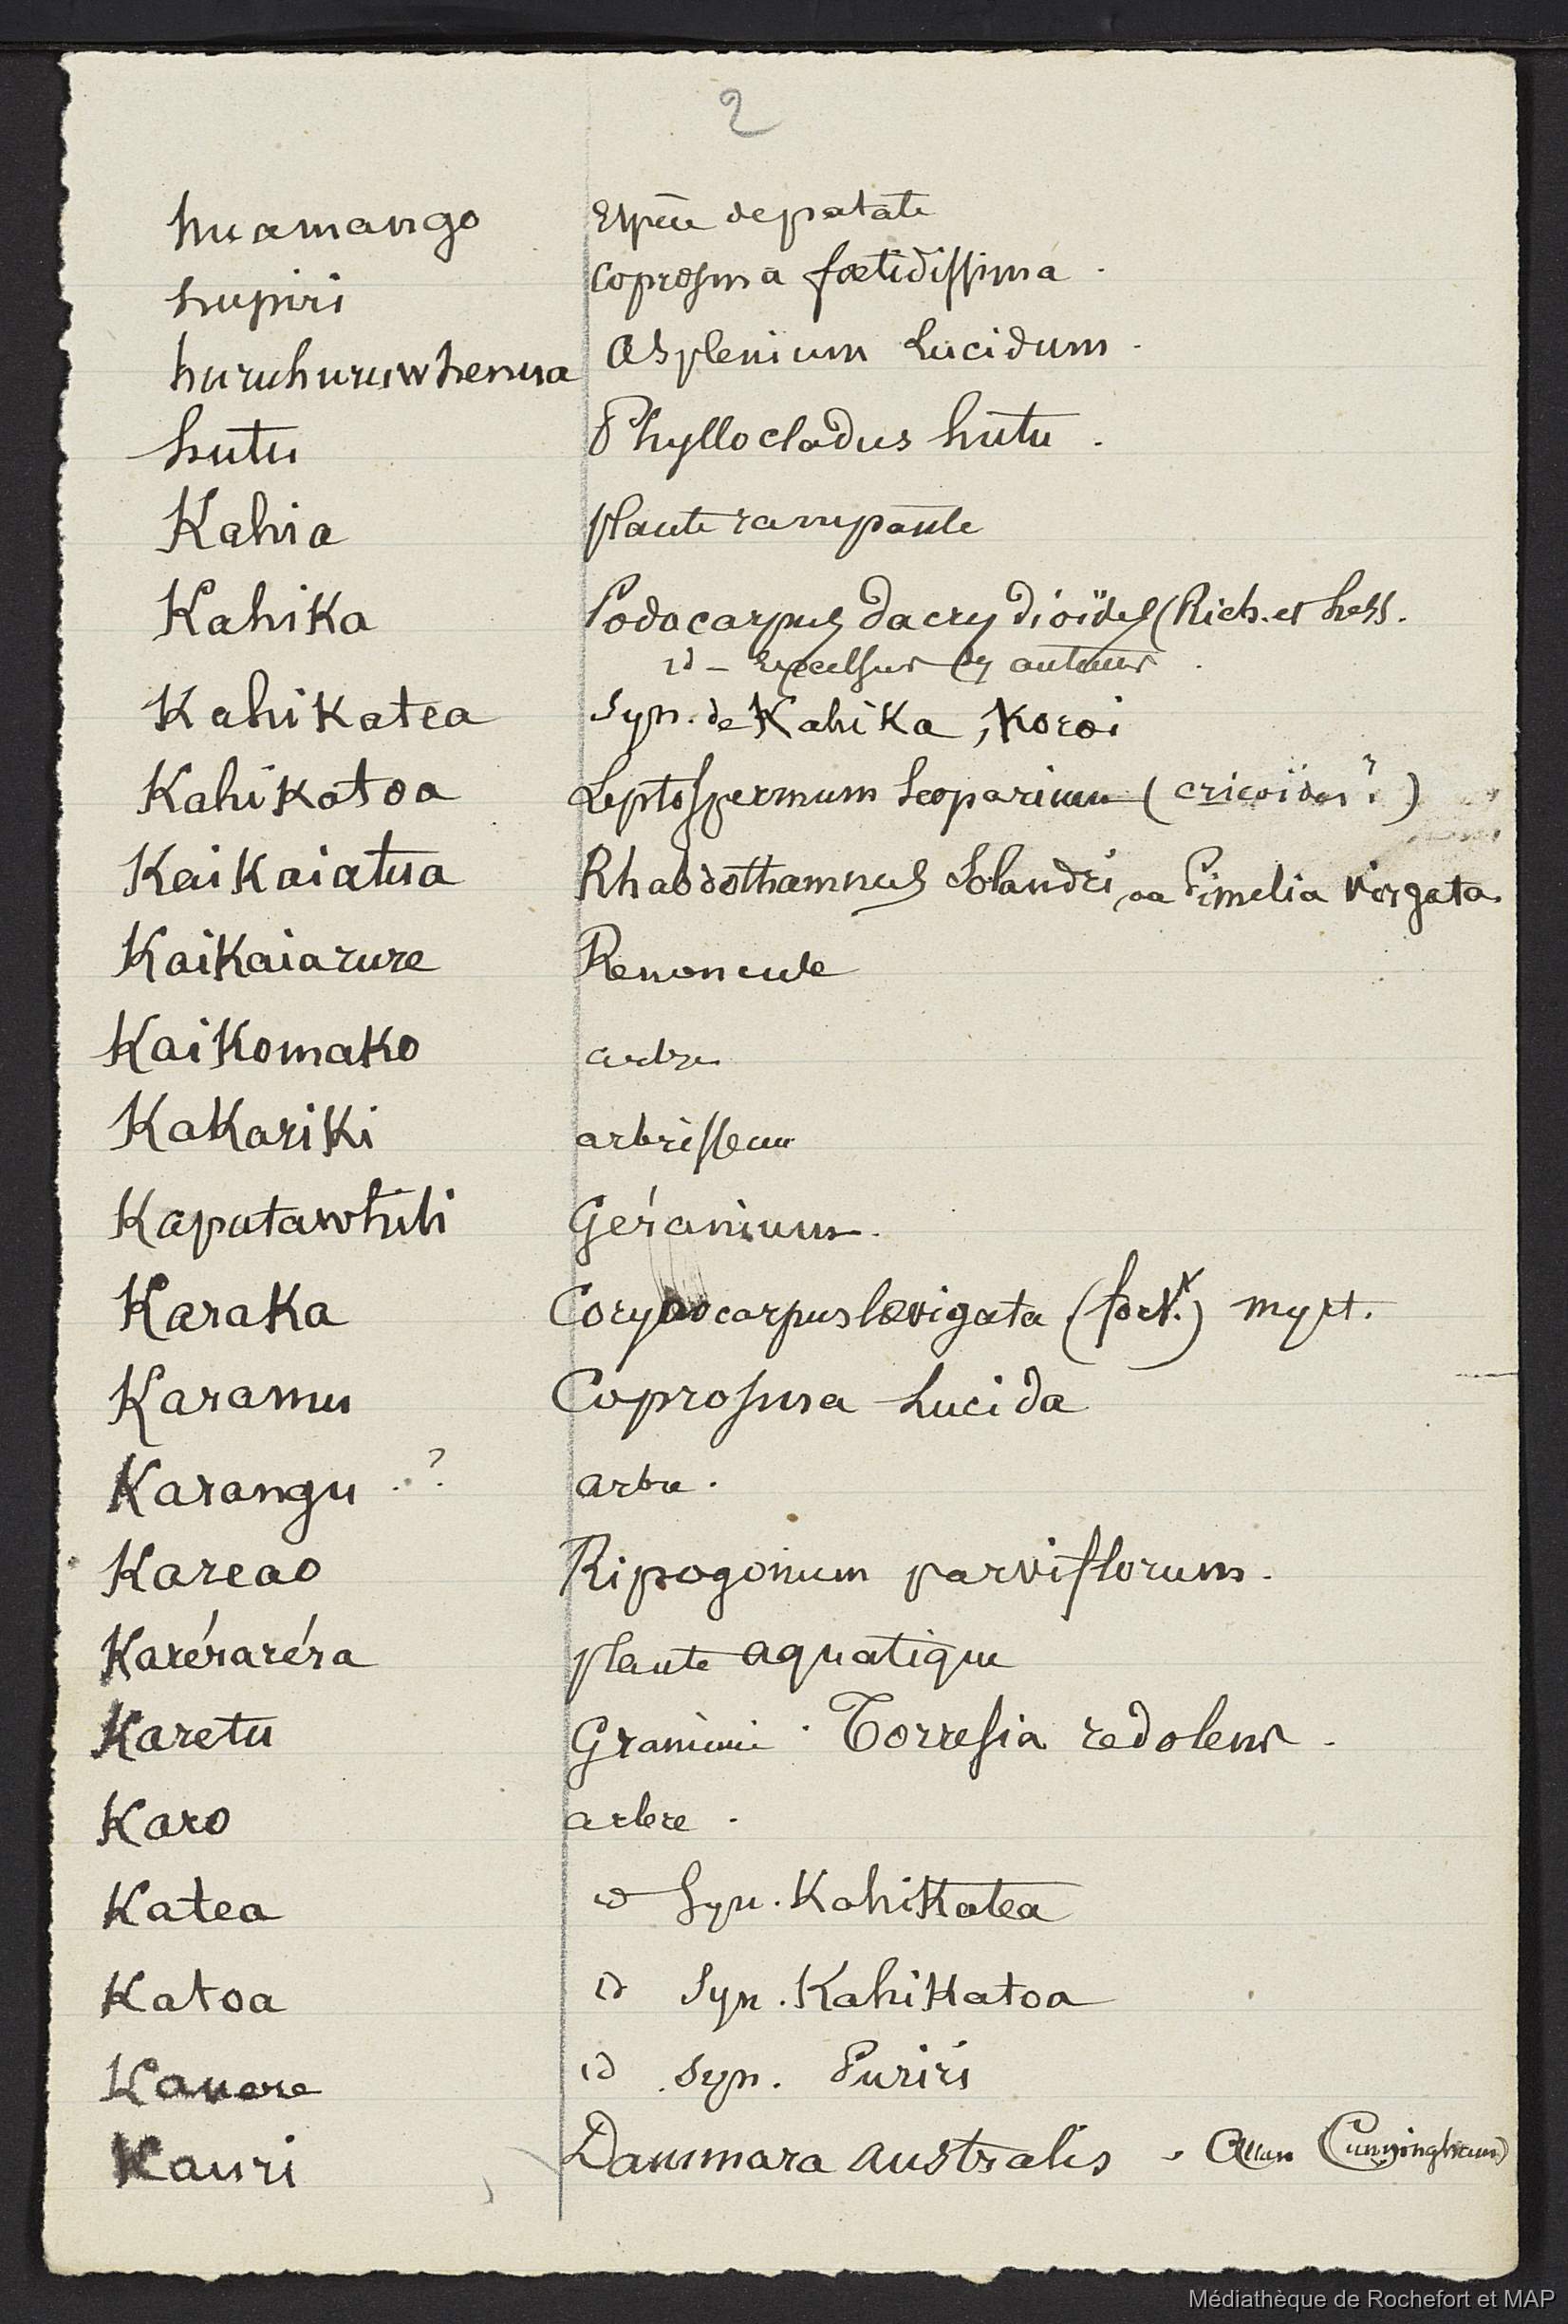 2
huamango Espèce de patate
hupiri Coprosma fœtidissima .
huruhuruwhenua Asplenium Lucidum .
hutu Phyllocladus hutu .
Kahia plante rampante
Kahika Podocarpus dacrydioïdes (Rich. et Less.
id – Excelsus des auteurs .
Kahikatea Syn. de Kahika, Koroi
Kahikatoa Leptospermum Scoparium (ericoïdes ?)
Kaikaiatua Rhabdothamnus Solandri, ou Pimelia virgata.
Kaikaiarure Renoncule
Kaikomako arbre
Kakariki arbrisseau
Kaputawhiti Géranium.
Karaka Corynocarpus lævigata (forst.) myrt.
Karamu Coprosma Lucida
Karangu . ? arbre .
Kareao Ripogonum parviflorum .
Karéraréra plante aquatique
Karetu Graminée . Torresia redolens .
Karo arbre .
Katea id Syn. Kahikatea
Katoa id Syn. Kahikatoa
Kauere id Syn. Puriri
Kauri Dammara australis . Allan Cunningham
Médiathèque de Rochefort et MAP